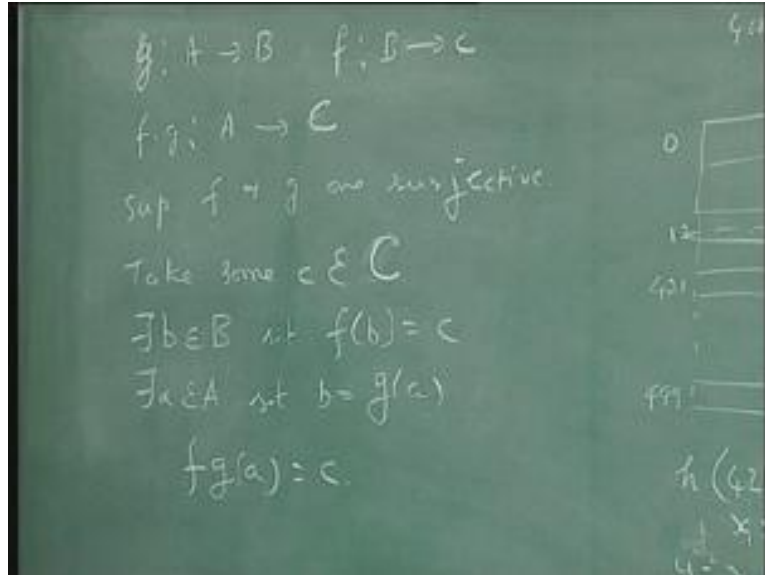 g: A → B f: B → C
f.g: A → C
Sup f & g are surjective
Take some c ε C
∃b∈B s.t. f(b) = c
∃a∈A s.t b = g(a)
fg(a) = c.
0
12
421
499
h (42
x